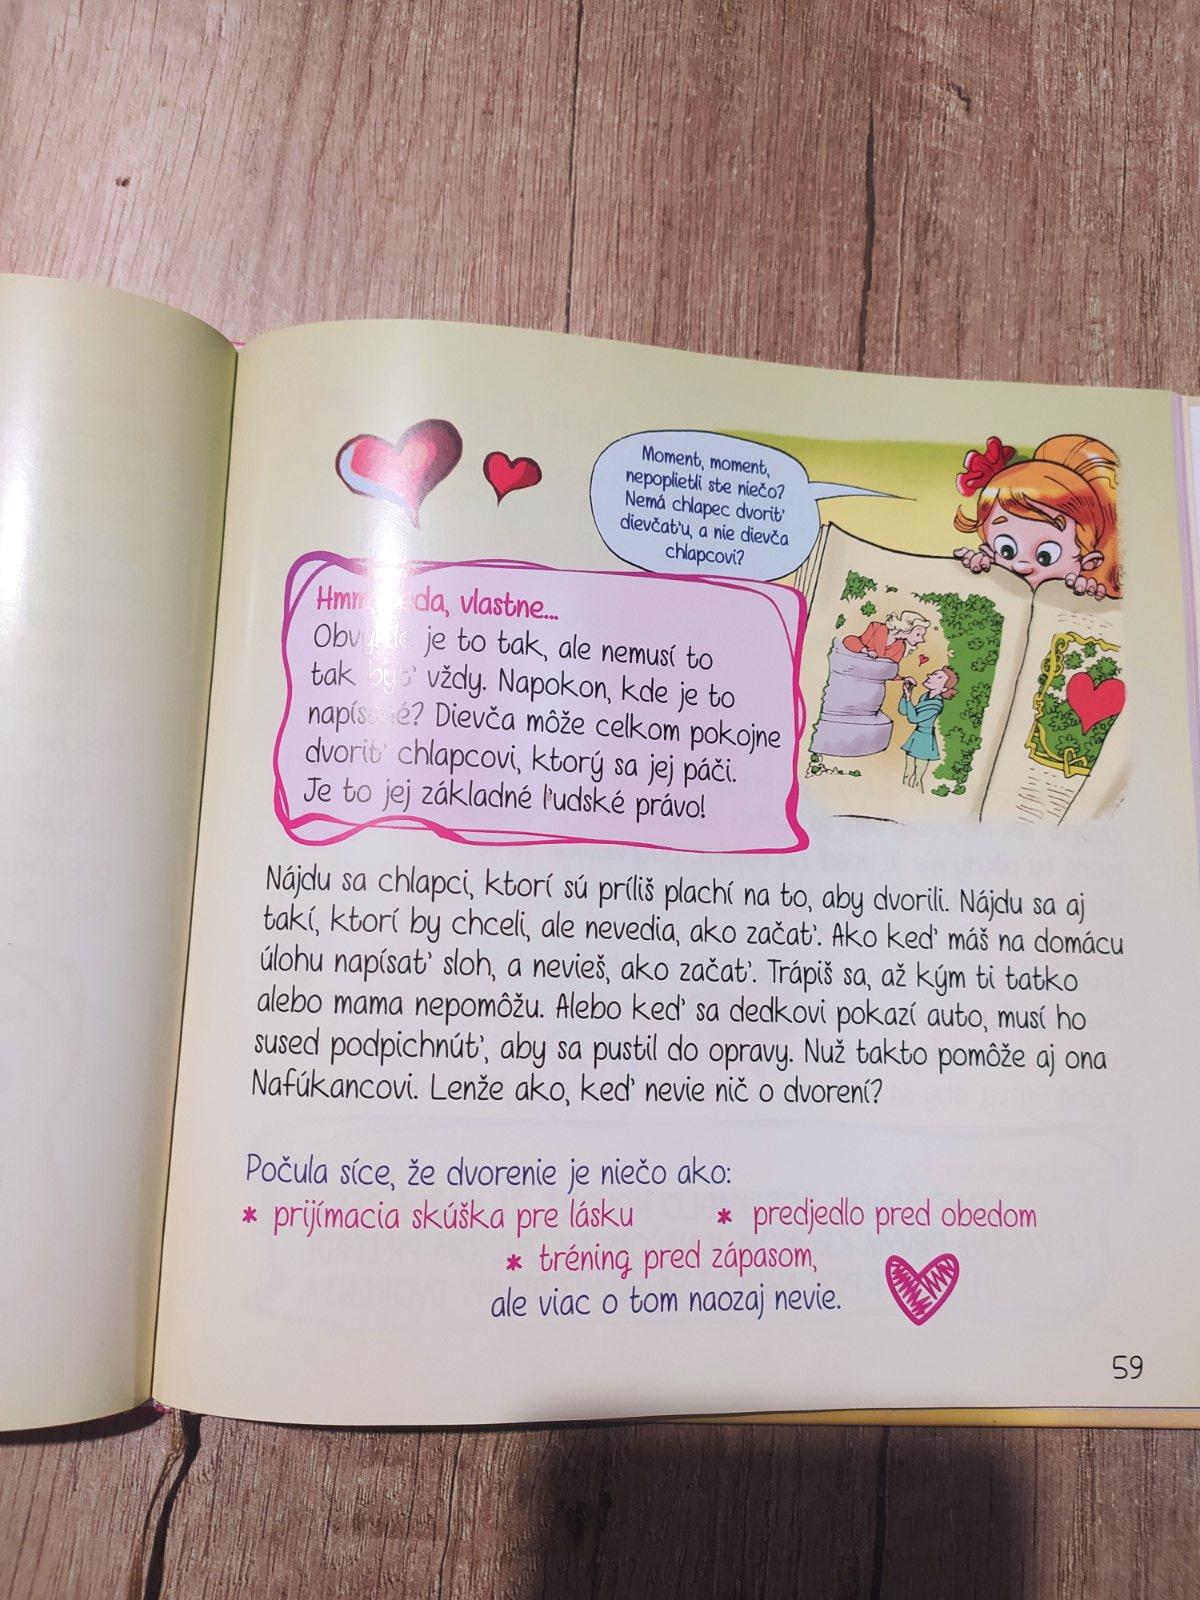 Moment, moment,
nepoplietli ste niečo?
Nemá chlapec dvoriť
dievčaťu, a nie dievča
chlapcovi?
vlastne...
je to tak, ale nemusí to
tak byť vždy. Napokon, kde je to
napísané? Dievča môže celkom pokojne
dvoriť chlapcovi, ktorý sa jej páči.
Je to jej základné ľudské právo!
Nájdu sa chlapci, ktorí sú príliš plachí na to, aby dvorili. Nájdu sa aj
takí, ktorí by chceli, ale nevedia, ako začať. Ako keď máš na domácu
úlohu napísať sloh, a nevieš, ako začať. Trápiš sa, až kým ti tatko
alebo mama nepomôžu. Alebo keď sa dedkovi pokazí auto, musí ho
sused podpichnúť, aby sa pustil do opravy. Nuž takto pomôže aj ona
Nafúkancovi. Lenže ako, keď nevie nič o dvorení?
Počula síce, že dvorenie je niečo ako:
* prijímacia skúška pre lásku * predjedlo pred obedom
* tréning pred zápasom,
ale viac o tom naozaj nevie.
59